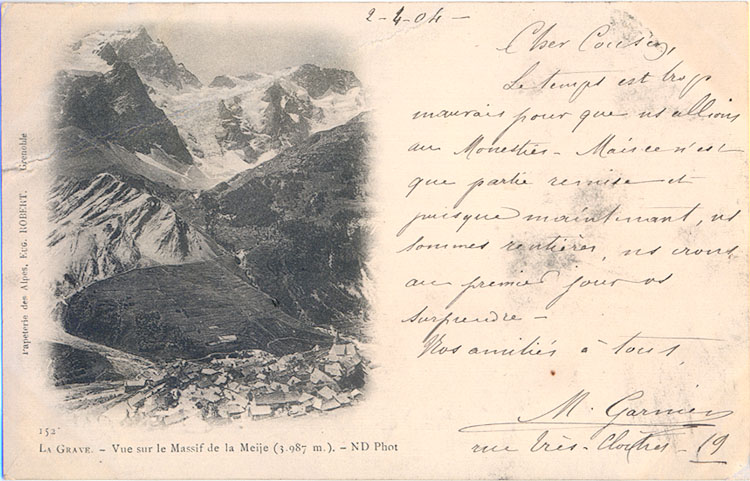 2-4-04 -
Cher Cousin,
Le temps est trop
mauvais pour que ns allions
au Monestier - Mais ce n'est
que partie remise et
puisque maintenant, ns
sommes rentières, ns irons
au premier jour vs
surprendre -
Nos amitiés à tous,
M. Garnier
rue Très-Cloîtres - 19
Papeterie des Alpes, EUG. ROBERT. Grenoble
152
LA GRAVE. - Vue sur le Massif de la Meije (3.987 m.). - ND Phot